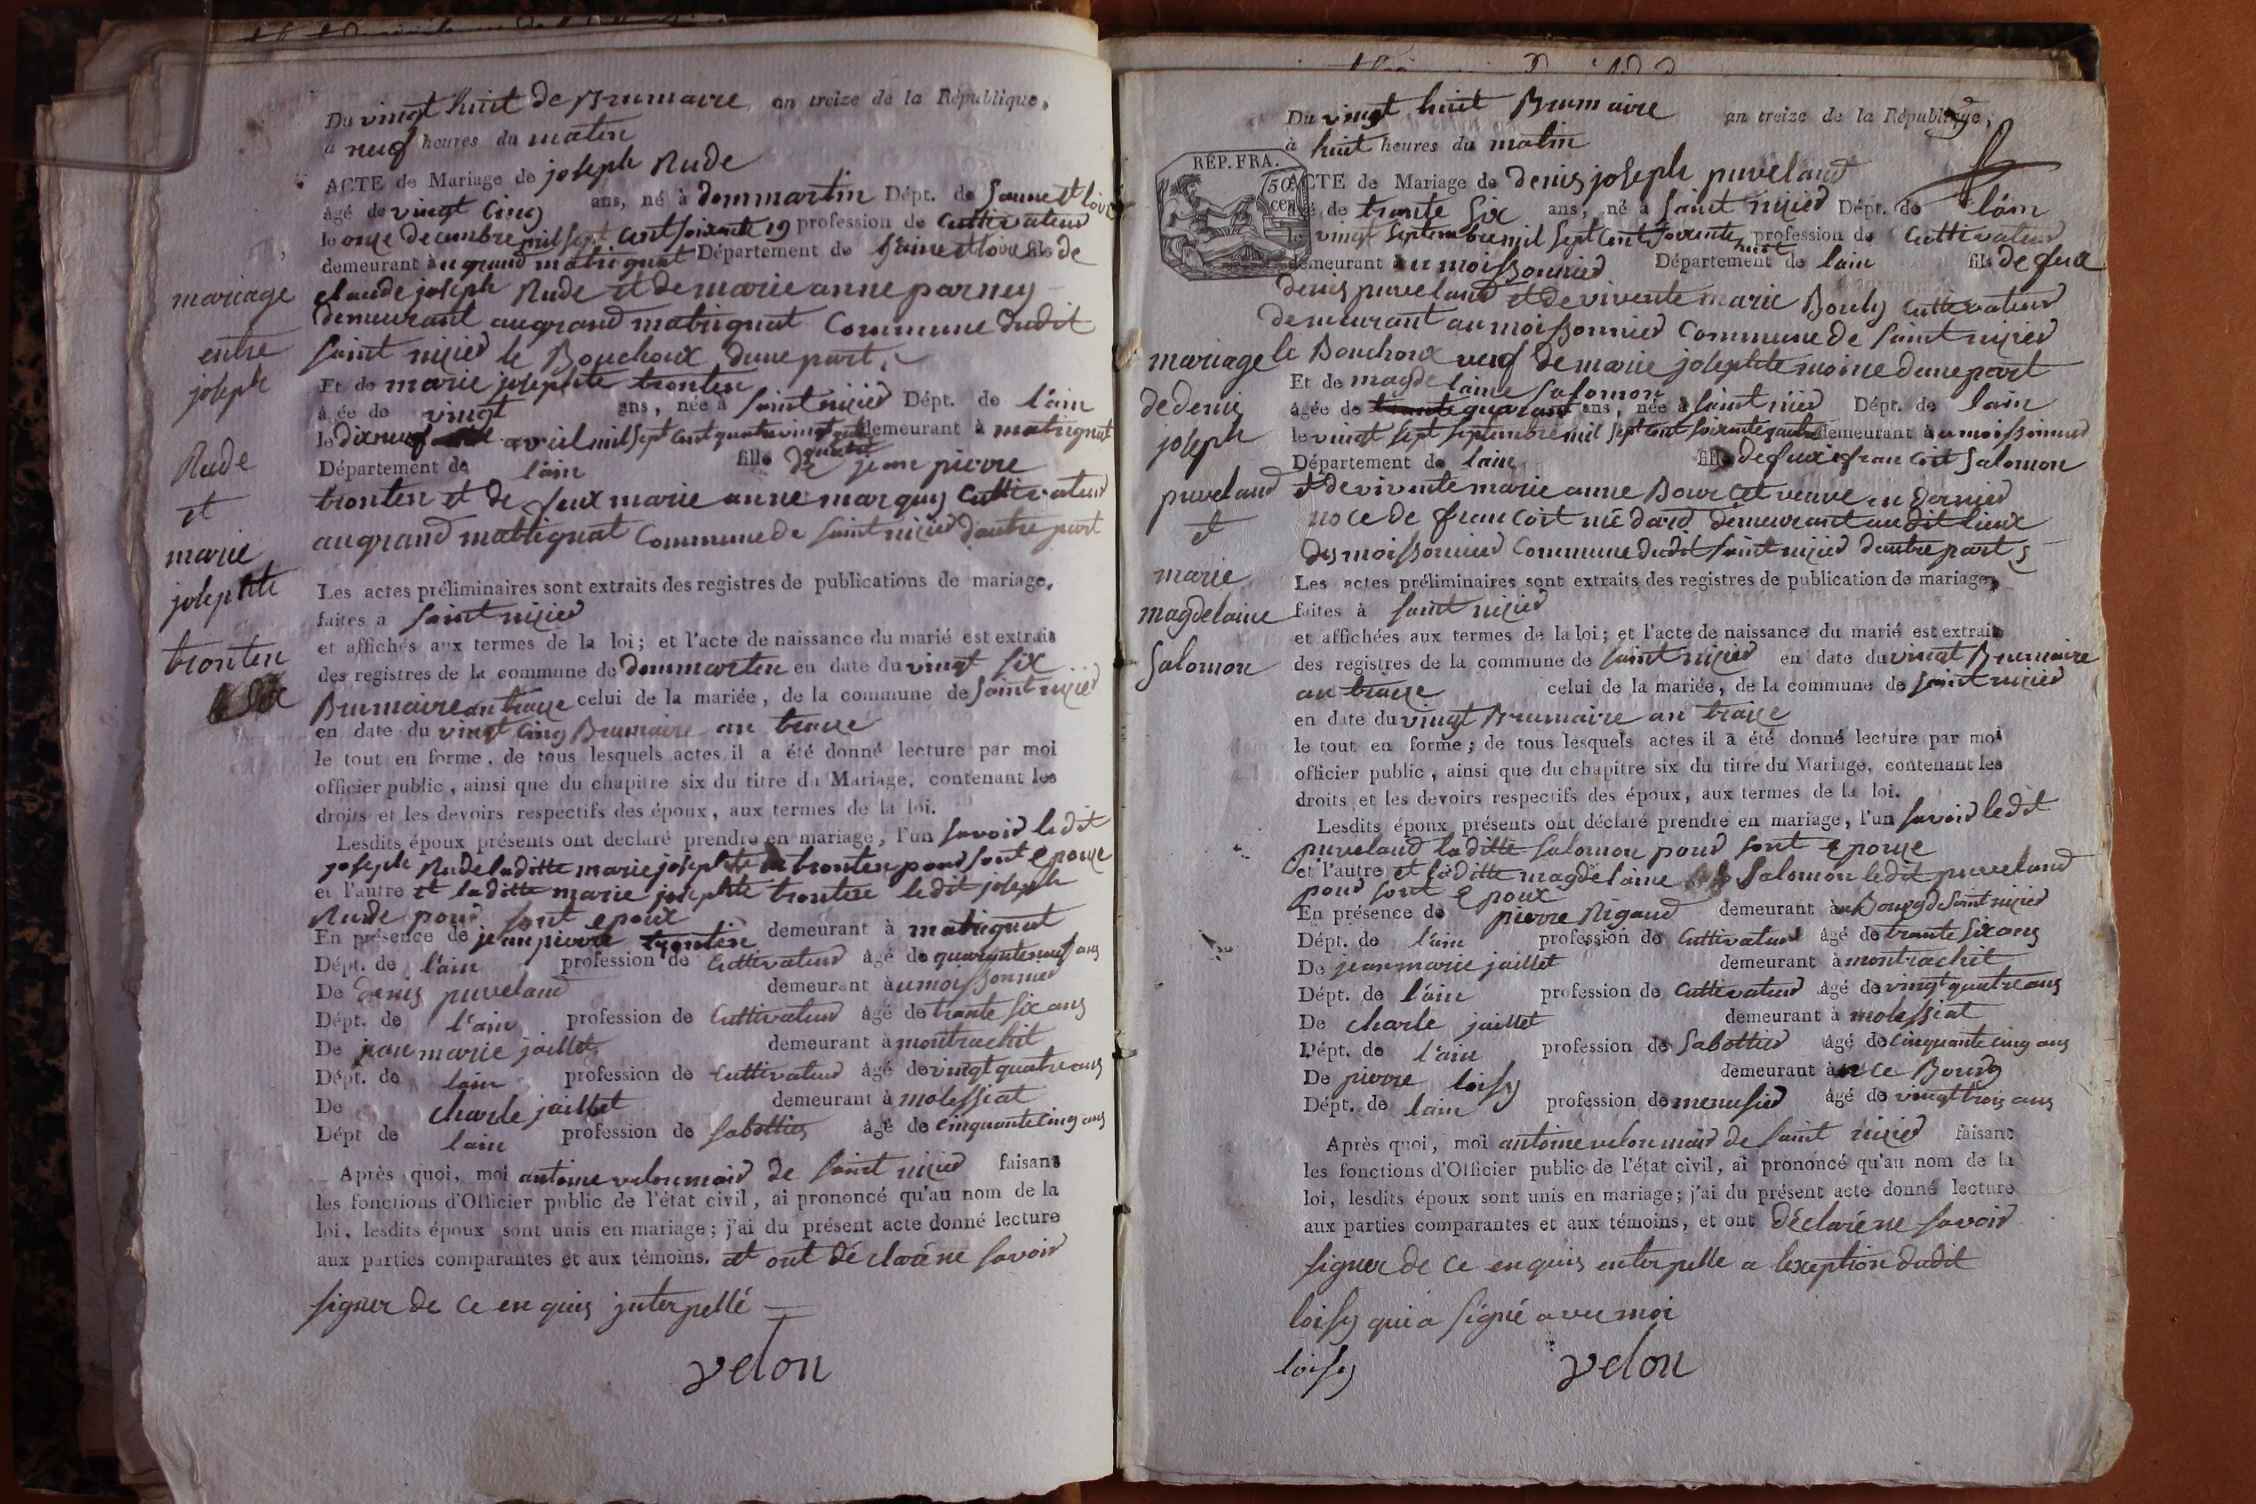 Du vingt huit de Brumaire, an treize de la République,
à neuf heures du matin
ACTE de Mariage de joseph Rude
âgé de vingt cinq ans, né à dommartin Dépt. de Saune et loire
le onze decembre mil sept cent soixante 19 profession de Cuttivateur
demeurant au grand matrignat Département de Saine et loire fils de
claude joseph Rude et de marie anne parney
demeurant au grand matrignat Commune dudit
saint nizier le Bouchoux dune part
Et de marie josephte tronten
âgée de vingt ans, née à saint nizier Dépt. de l'ain
le dix neuf avril mil sept cent quatre vingt quatre demeurant à matrignat
Département de lain fille de jean pierre
tronten et de feux marie anne marquy Cuttivateur
au grand matrignat Commune de saint nizier dautre part
Les actes préliminaires sont extraits des registres de publications de mariage,
faites a saint nizier
et affichés aux termes de la loi; et l'acte de naissance du marié est extrait
des registres de la commune de dommarten en date du vingt six
Brumaire an traize celui de la mariée, de la commune de saint nizier
en date du vingt cinq Brumaire an traize
le tout en forme, de tous lesquels actes il a été donné lecture par moi
officier public, ainsi que du chapitre six du titre du Mariage, contenant les
droits et les devoirs respectifs des époux, aux termes de la loi.
Lesdits époux présents ont declaré prendre en mariage, l'un savoir le dit
joseph Rude laditte marie josephte tronten pour sont epouze
et l'autre et laditte marie josephte tronten le dit joseph
Rude pour sont epoux
En présence de jean pierre trontin demeurant à matrignat
Dépt. de l'ain profession de Cuttivateur âgé de quarante neuf ans
De denis puveland demeurant au moissonnier
Dépt. de l'ain profession de Cuttivateur âgé de trante six ans
De jean marie jaillet demeurant à montrachit
Dépt. de lain profession de Cuttivateur âgé de vingt quatre ans
De charle jaillet demeurant à molessiat
Dépt de lain profession de sabottier âgé de cinquante cinq ans
Après quoi, moi antoine velon mair de saint nizier faisant
les fonctions d'Officier public de l'état civil, ai prononcé qu'au nom de la
loi, lesdits époux sont unis en mariage; j'ai du présent acte donné lecture
aux parties comparantes et aux témoins. et ont déclaré ne savoir
signer de ce enquis interpellé
velon
mariage
entre
joseph
Rude
et
marie
josephte
tronten
Du vingt huit Brumaire an treize de la République,
à huit heures du matin
REP. FRA.
50 cen
ACTE de Mariage de denis joseph puveland
âgé de trante six ans, né à saint nizier Dépt. de lain
le vingt septembre mil sept cent soixente huit profession de Cuttivateur
demeurant au moissonnier Département de lain fils de feux
denis puveland et de vivente marie Bouly cuttivateur
demeurant au moissonnier Commune de saint nizier
le Bouchoux veuf de marie josephte moine dune part
Et de magdelaine salomon
âgée de quarant ans, née à saint nizier Dépt. de lain
le vingt sept septembre mil sept cent soixante quatre demeurant au moissonnier
Département de lain fille de feux francoit salomon
et de vivente marie anne Bourcet veuve en dernier
noce de francoit médard demeurant audit lieux
des moissonnier Commune dudit saint nizier dautre part
Les actes préliminaires sont extraits des registres de publication de mariage,
faites à saint nizier
et affichées aux termes de la loi; et l'acte de naissance du marié est extrait
des registres de la commune de saint nizier en date du vingt Brumaire
an traize celui de la mariée, de la commune de saint nizier
en date du vingt Brumaire an traize
le tout en forme; de tous lesquels actes il a été donné lecture par moi
officier public, ainsi que du chapitre six du titre du Mariage, contenant les
droits et les devoirs respectifs des époux, aux termes de la loi.
Lesdits époux présents ont déclaré prendre en mariage, l'un savoir le dit
puveland laditte salomon pour sont epouze
et l'autre et laditte magdelaine salomon ledit puveland
pour sont epoux
En présence de pierre Rigaud demeurant au Bourg de saint nizier
Dépt. de l'ain profession de Cuttivateur âgé de trante six ans
De jean marie jaillet demeurant à montrachit
Dépt. de l'ain profession de Cuttivateur âgé de vingt quatre ans
De charle jaillet demeurant à molessiat
Dépt. de l'ain profession de sabottier âgé de cinquante cinq ans
De pierre loisy demeurant à ce Bourg
Dépt. de lain profession de menusier âgé de vingt trois ans
Après quoi, moi antoine velon mair de saint nizier faisant
les fonctions d'Officier public de l'état civil, ai prononcé qu'au nom de la
loi, lesdits époux sont unis en mariage; j'ai du présent acte donné lecture
aux parties comparantes et aux témoins, et ont déclaré ne savoir
signer de ce enquis enterpelle a lexeption dudit
loisy qui a signé avec moi
loisy velon
mariage
de denis
joseph
puveland
et
marie
magdelaine
salomon